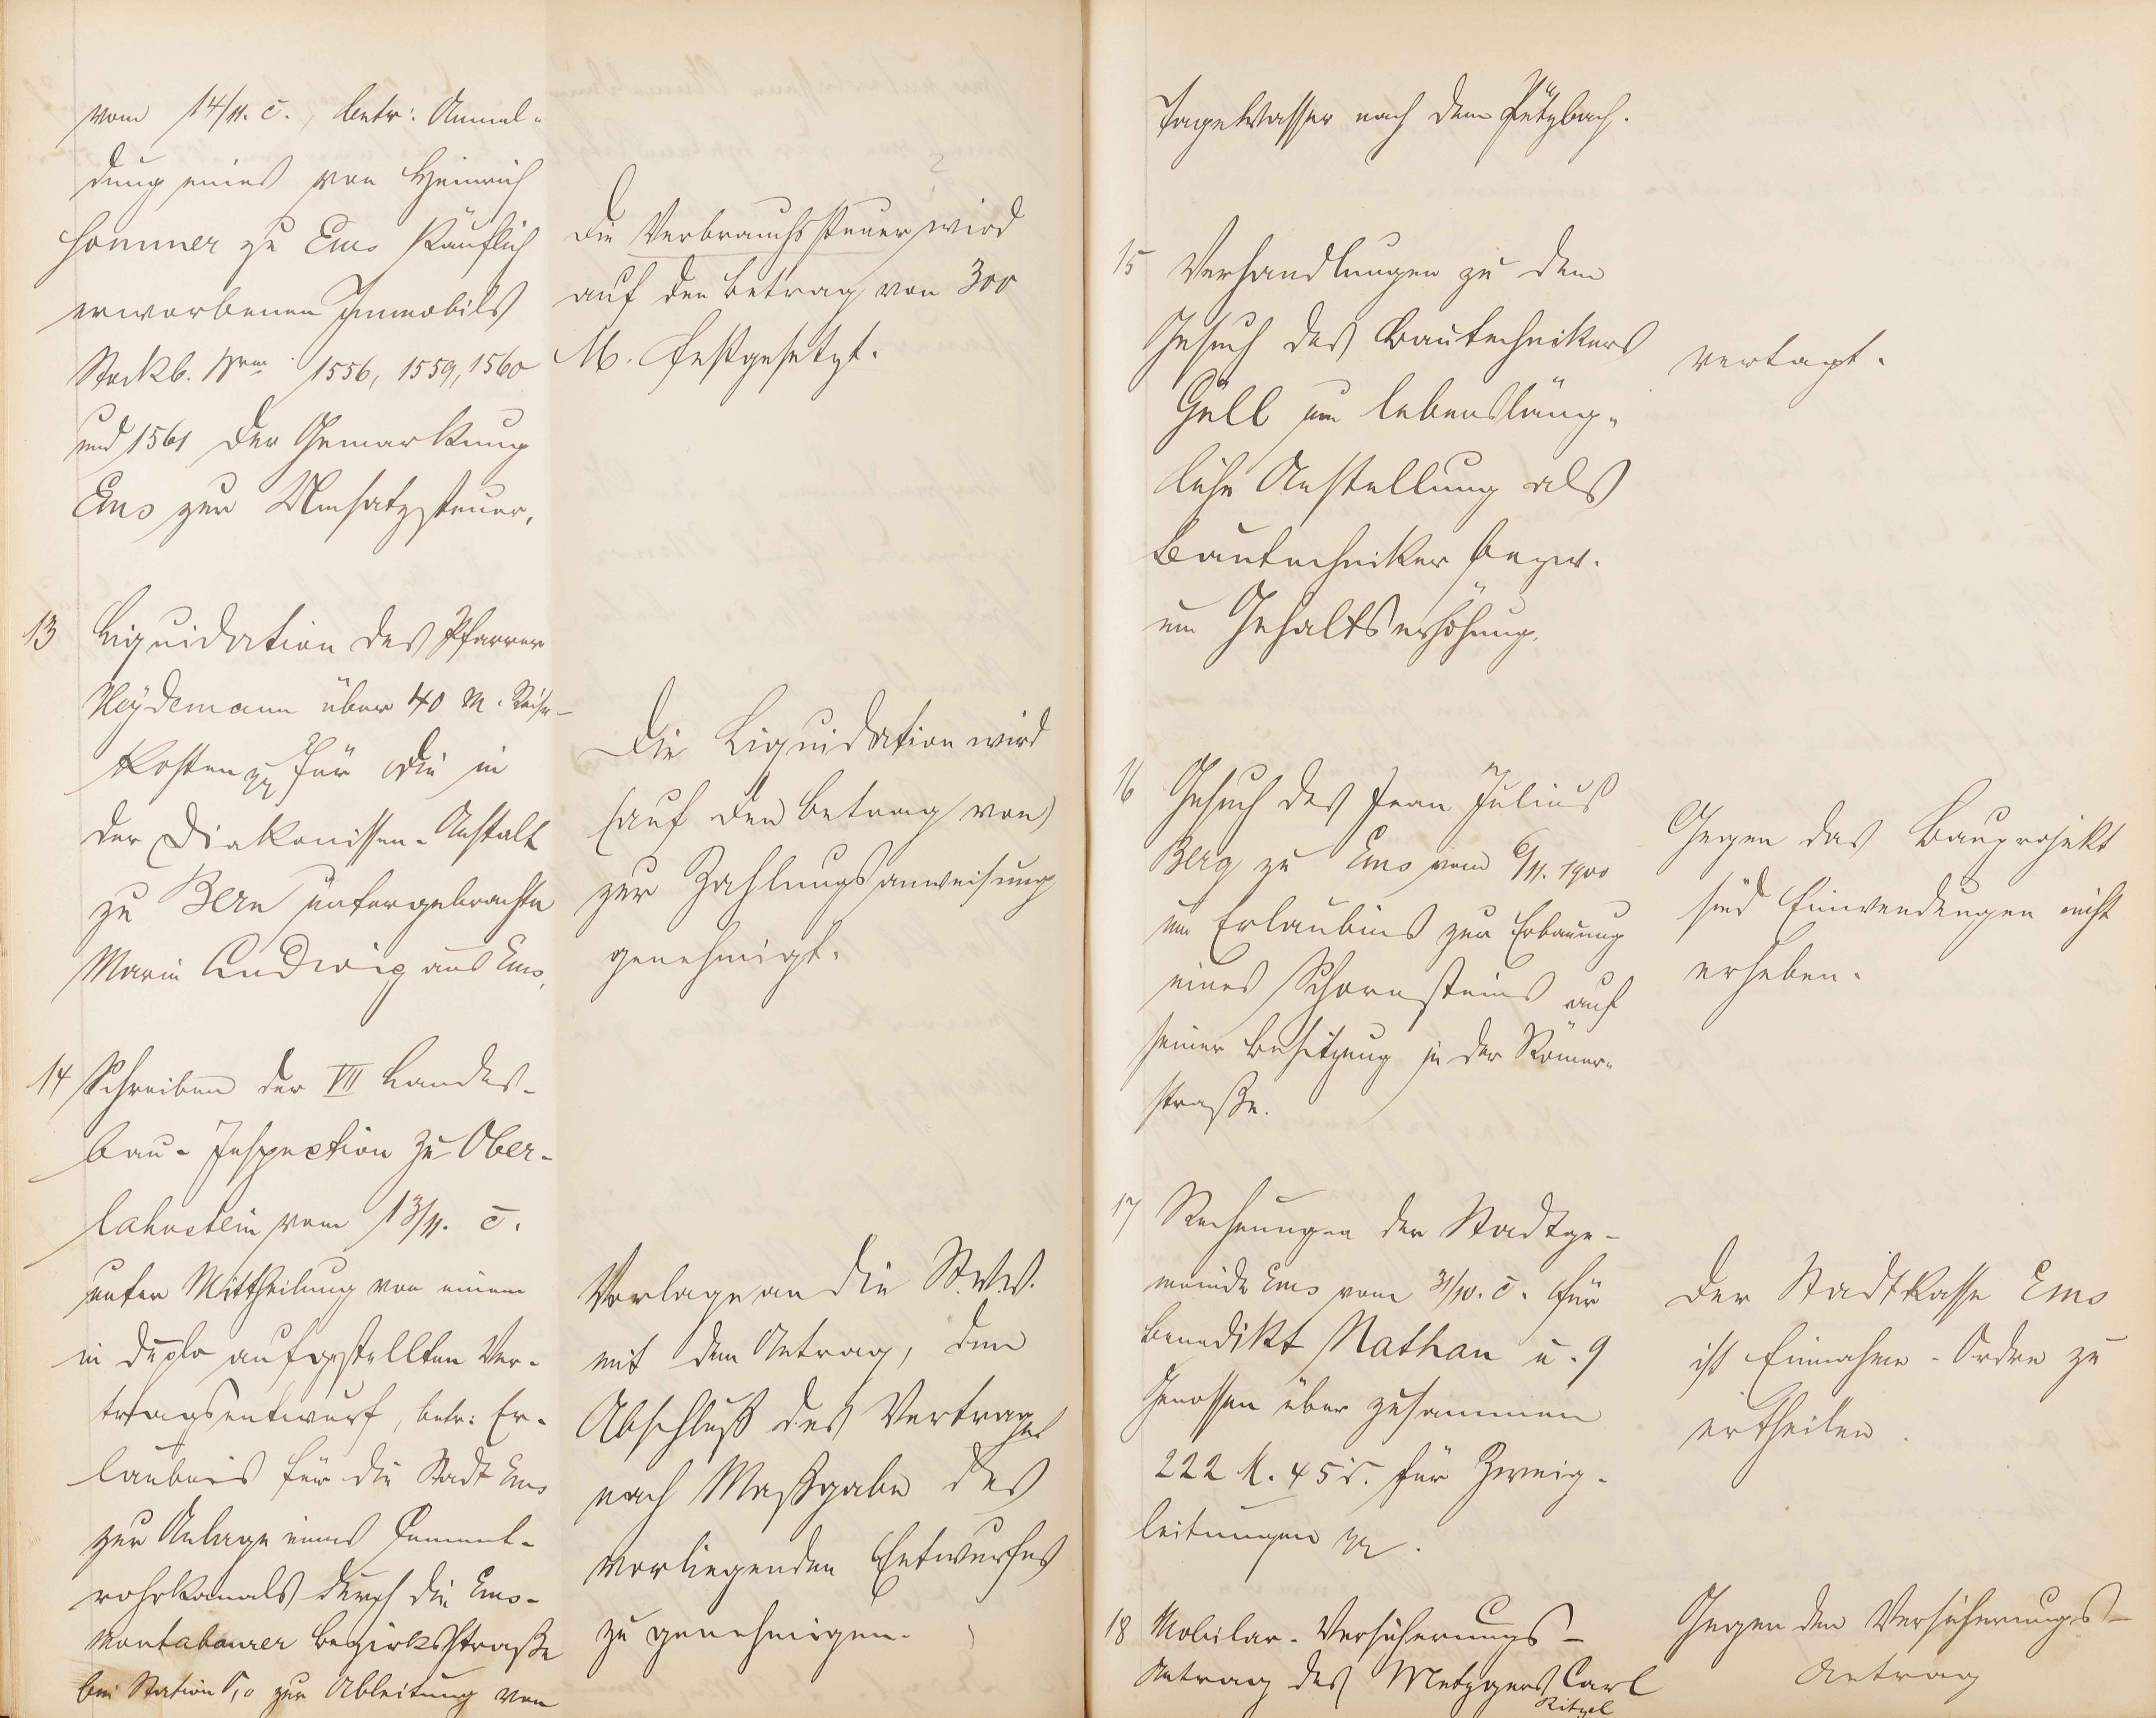 vom 14/11. c., betr: Anmel-
dung eines von Heinrich
Sommer zu Ems käuflich
erworbenen Immobils
Stockb. Nrn 1556, 1559, 1560
und 1561 der Gemarkung
Ems zur Umsatzsteuer.
Die Verbrauchssteuer wird
auf den Betrag von 300
M. festgesetzt.
13 Liquidation des Pfarrer
Heydemann über 40 M. Reise-
kosten pp für die in
der Diakonissen-Anstalt
zu Bern untergebrachte
Marie Ludwig aus Ems.
Die Liquidation wird
(auf den Betrag von)
zur Zahlungsanweisung
genehmigt.
14 Schreiben der VII Landes-
bau-Inspection zu Ober-
lahnstein vom 13/11. c.
unter Mittheilung von einem
in duplo aufgestellten Ver-
tragsentwurf, betr: Er-
laubnis für die Stadt Ems
zur Anlage eines Cement-
rohrkanals durch die Ems-
Montabaurer Bezirksstraße
bei Station 5,0 zur Ableitung von
Vorlage an die St.V.V.
mit dem Antrag, den
Abschluß des Vertrages
nach Maßgabe des
vorliegenden Entwurfes
zu genehmigen.
Tagewasser nach dem Pützbach.
15 Verhandlungen zu dem
Gesuch des Bautechnikers
Güll um lebensläng-
liche Anstellung als
Bautechniker bezw.
um Gehaltserhöhung.
vertagt.
16 Gesuch des Jean Julius
Berg zu Ems vom 6/11. 1900
um Erlaubnis zur Erbauung
eines Schornsteins auf
seiner Besitzung in der Römer-
straße.
Gegen das Bauprojekt
sind Einwendungen nicht
erheben.
17 Rechnungen der Stadtge-
meinde Ems vom 31/10. c. für
Benedikt Nathan u. 9
Genossen über zusammen
222 M. 45 für Zweig-
leitungen pp.
Der Stadtkasse Ems
ist Einnahme-Ordre zu
ertheilen.
18 Mobilar-Versicherungs-
Antrag des Metzgers Carl
Ritzel
Gegen den Versicherungs-
Antrag